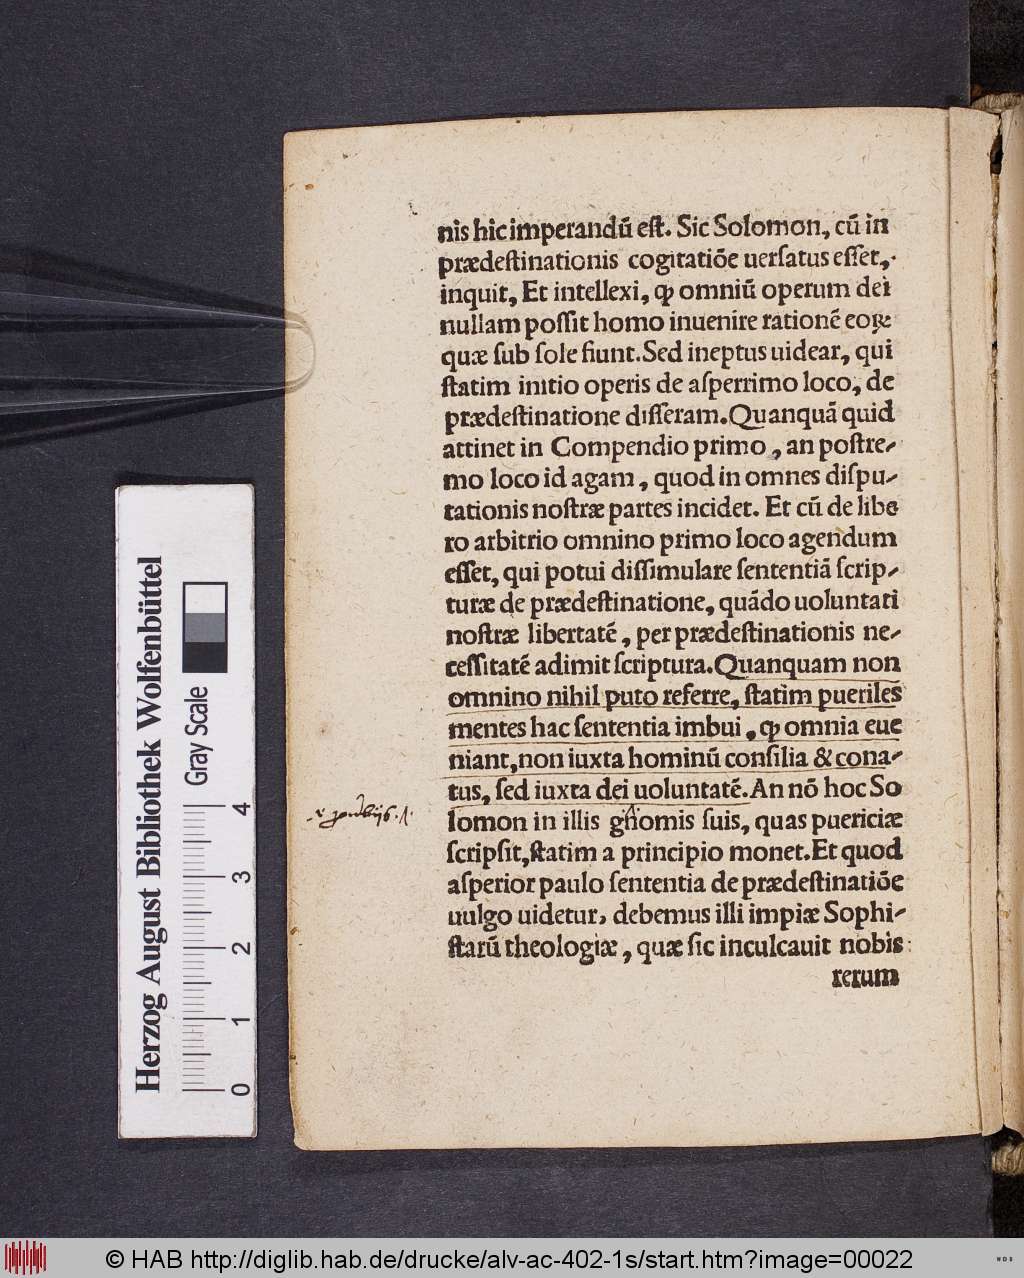 nis hic imperandũ eſt. Sic Solomon, cũ in
prædeſtinationis cogitatiõe uerſatus eſſet,
inquit, Et intellexi, ꝙ omniũ operum dei
nullam poſſit homo inuenire rationẽ eoꝝ
quæ ſub ſole fiunt. Sed ineptus uidear, qui
ſtatim initio operis de aſperrimo loco, de
prædeſtinatione diſſeram. Quanquã quid
attinet in Compendio primo, an poſtre-
mo loco id agam, quod in omnes diſpu-
tationis noſtræ partes incidet. Et cũ de libe
ro arbitrio omnino primo loco agendum
eſſet, qui potui diſſimulare ſententiã ſcrip-
turæ de prædeſtinatione, quãdo uoluntati
noſtræ libertatẽ, per prædeſtinationis ne-
ceſſitatẽ adimit ſcriptura. Quanquam non
omnino nihil puto referre, ſtatim pueriles
mentes hac ſententia imbui, ꝙ omnia eue
niant, non iuxta hominũ conſilia & cona-
tus, ſed iuxta dei uoluntatẽ. An nõ hoc So
lomon in illis gñomis ſuis, quas puericiæ
ſcripſit, ſtatim a principio monet. Et quod
aſperior paulo ſententia de prædeſtinatiõe
uulgo uidetur, debemus illi impiæ Sophi-
ſtarũ theologiæ, quæ ſic inculcauit nobis
rerum
Herzog August Bibliothek Wolfenbüttel
Gray Scale
0 1 2 3 4
© HAB http://diglib.hab.de/drucke/alv-ac-402-1s/start.htm?image=00022